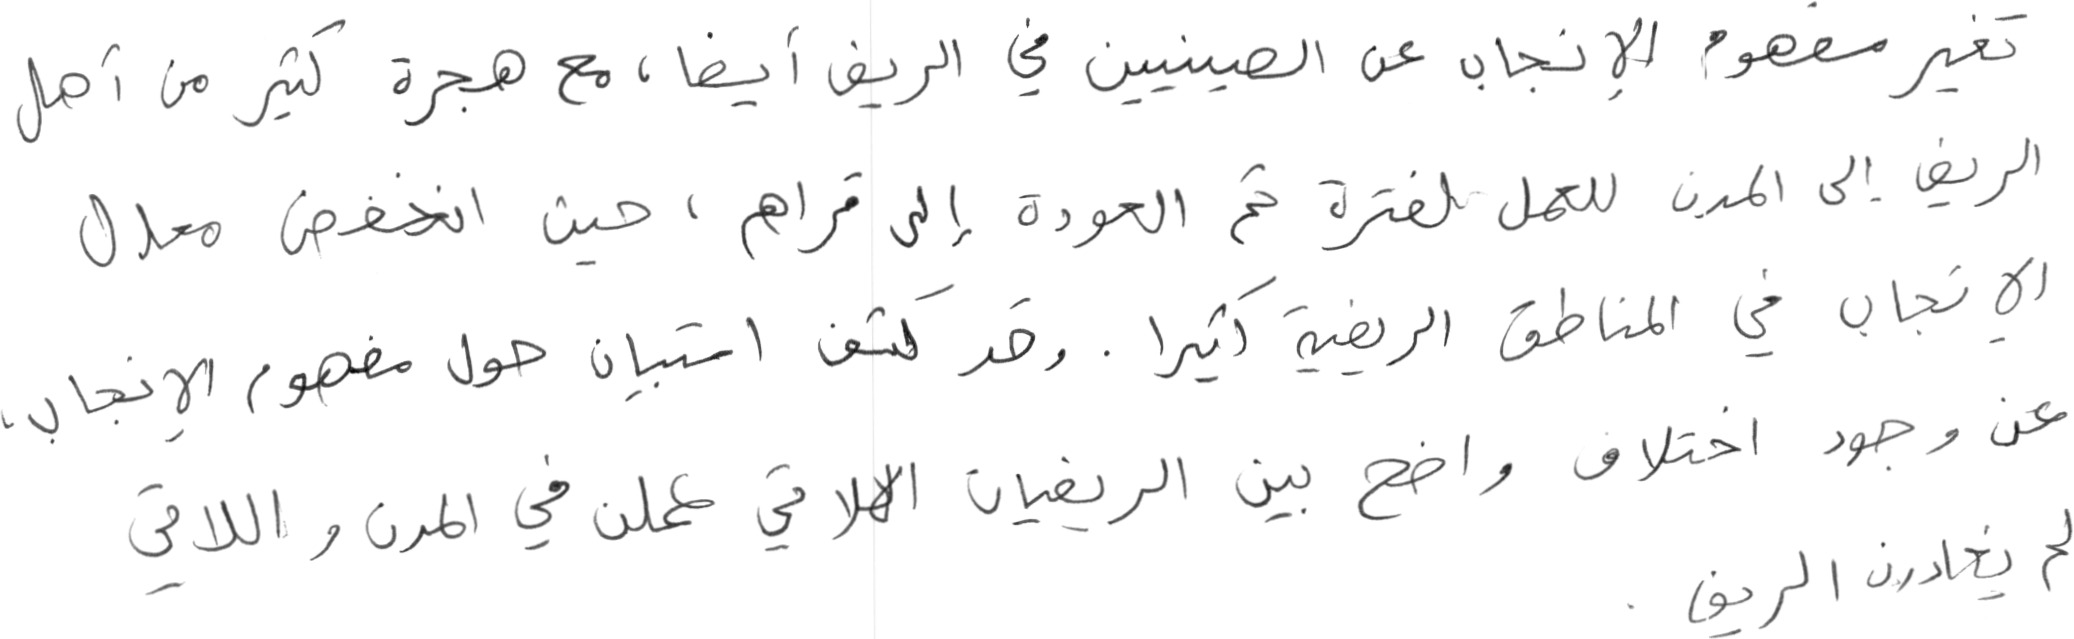 تغير مفهوم الإنجاب عن الصينيين في الريف أيضا، مع هجرة كثير من أهل
الريف إلى المدن للعمل لفترة ثم العودة إلى قراهم، حين انخفض معدل
الإنجاب في المناطق الريفية كثيرا. وقد كشف استبيان حول مفهوم الإنجاب،
عن وجود اختلاف واضح بين الريفيات اللاتي عملن في المدن واللاتي
لم يغادرن الريف.